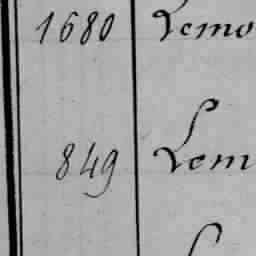 1680 Lemo
849 Lem